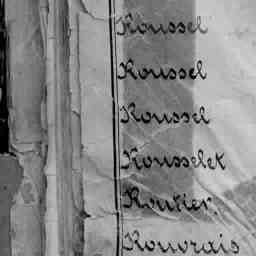 Roussel
Roussel
Roussel
Rousselet
Routier.
Rouvrais